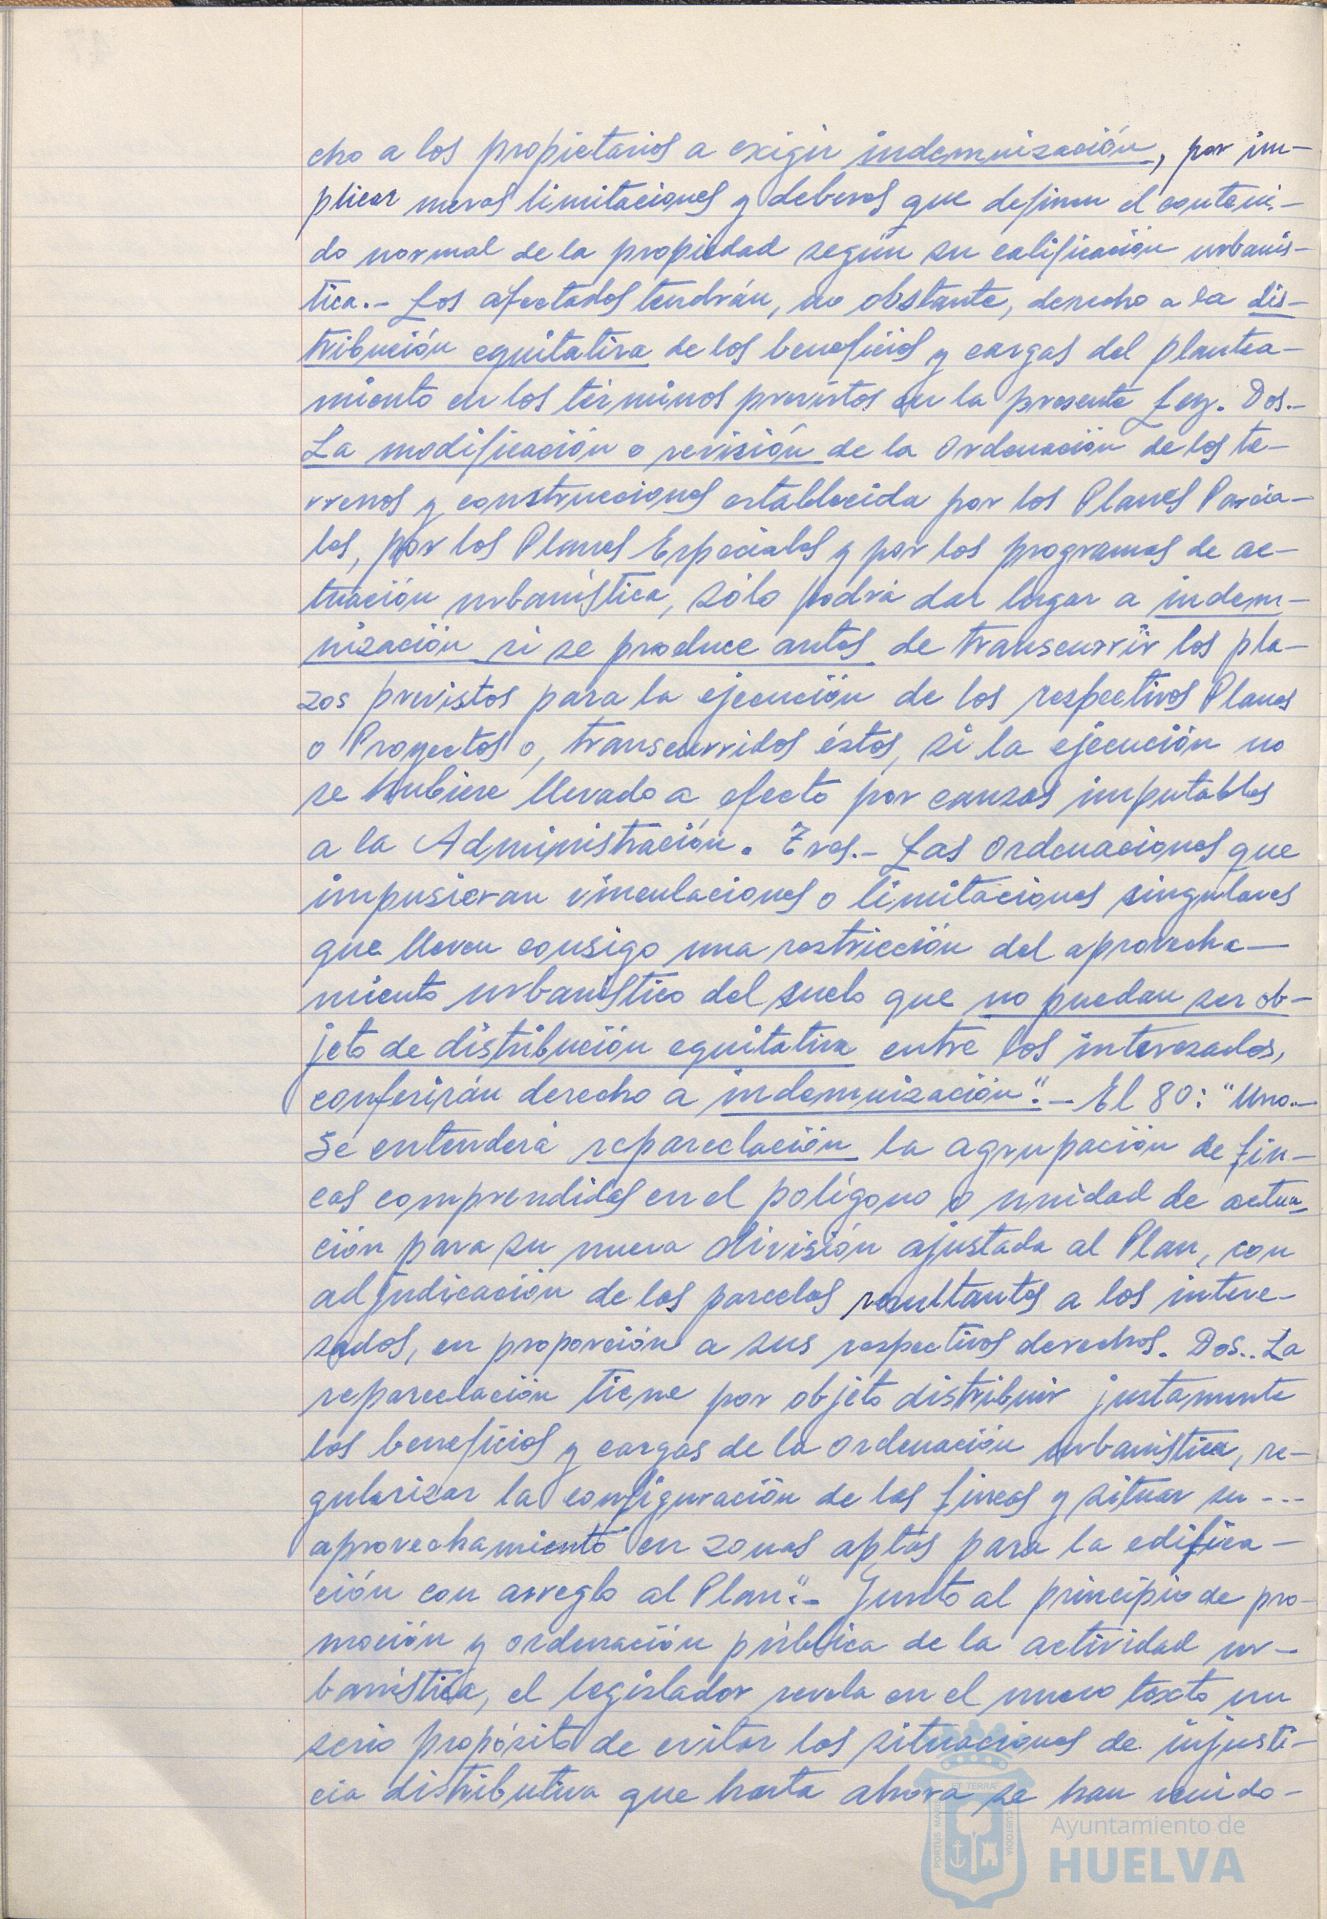 cho a los propietarios a exigir indemnización, por im-
plicar meras limitaciones y deberes que definen el conteni-
do normal de la propiedad según su calificación urbanís-
tica.- Los afectados tendrán, no obstante, derecho a la dis-
tribución equitativa de los beneficios y cargas del plantea-
miento en los términos previstos en la presente Ley. Dos.-
La modificación o revisión de la Ordenación de los te-
rrenos y construcciones establecida por los Planes Parcia-
les, por los Planes Especiales y por los programas de ac-
tuación urbanística, sólo podrá dar lugar a indem-
nización si se produce antes de transcurrir los pla-
zos previstos para la ejecución de los respectivos Planes
o Proyectos o, transcurridos éstos, si la ejecución no
se hubiere llevado a efecto por causas imputables
a la Administración. Tres.- Las Ordenaciones que
impusieran vinculaciones o limitaciones singulares
que lleven consigo una restricción del aprovecha-
miento urbanístico del suelo que no puedan ser ob-
jeto de distribución equitativa entre los interesados,
conferirán derecho a indemnización".- El 80: "Uno.-
Se entenderá reparcelación la agrupación de fin-
cas comprendidas en el polígono o unidad de actua-
ción para su nueva división ajustada al Plan, con
adjudicación de las parcelas resultantes a los intere-
sados, en proporción a sus respectivos derechos. Dos.. La
reparcelación tiene por objeto distribuir justamente
los beneficios y cargas de la Ordenación urbanística, re-
gularizar la configuración de las fincas y situar su ---
aprovechamiento en zonas aptas para la edifica-
ción con arreglo al Plan".- Junto al principio de pro-
moción y ordenación pública de la actividad ur-
banística, el legislador revela en el nuevo texto un
serio propósito de evitar las situaciones de injusti-
cia distributiva que hasta ahora se han venido-
ET TERRA
PORTUS MARIS
CUSTODIA
Ayuntamiento de
HUELVA